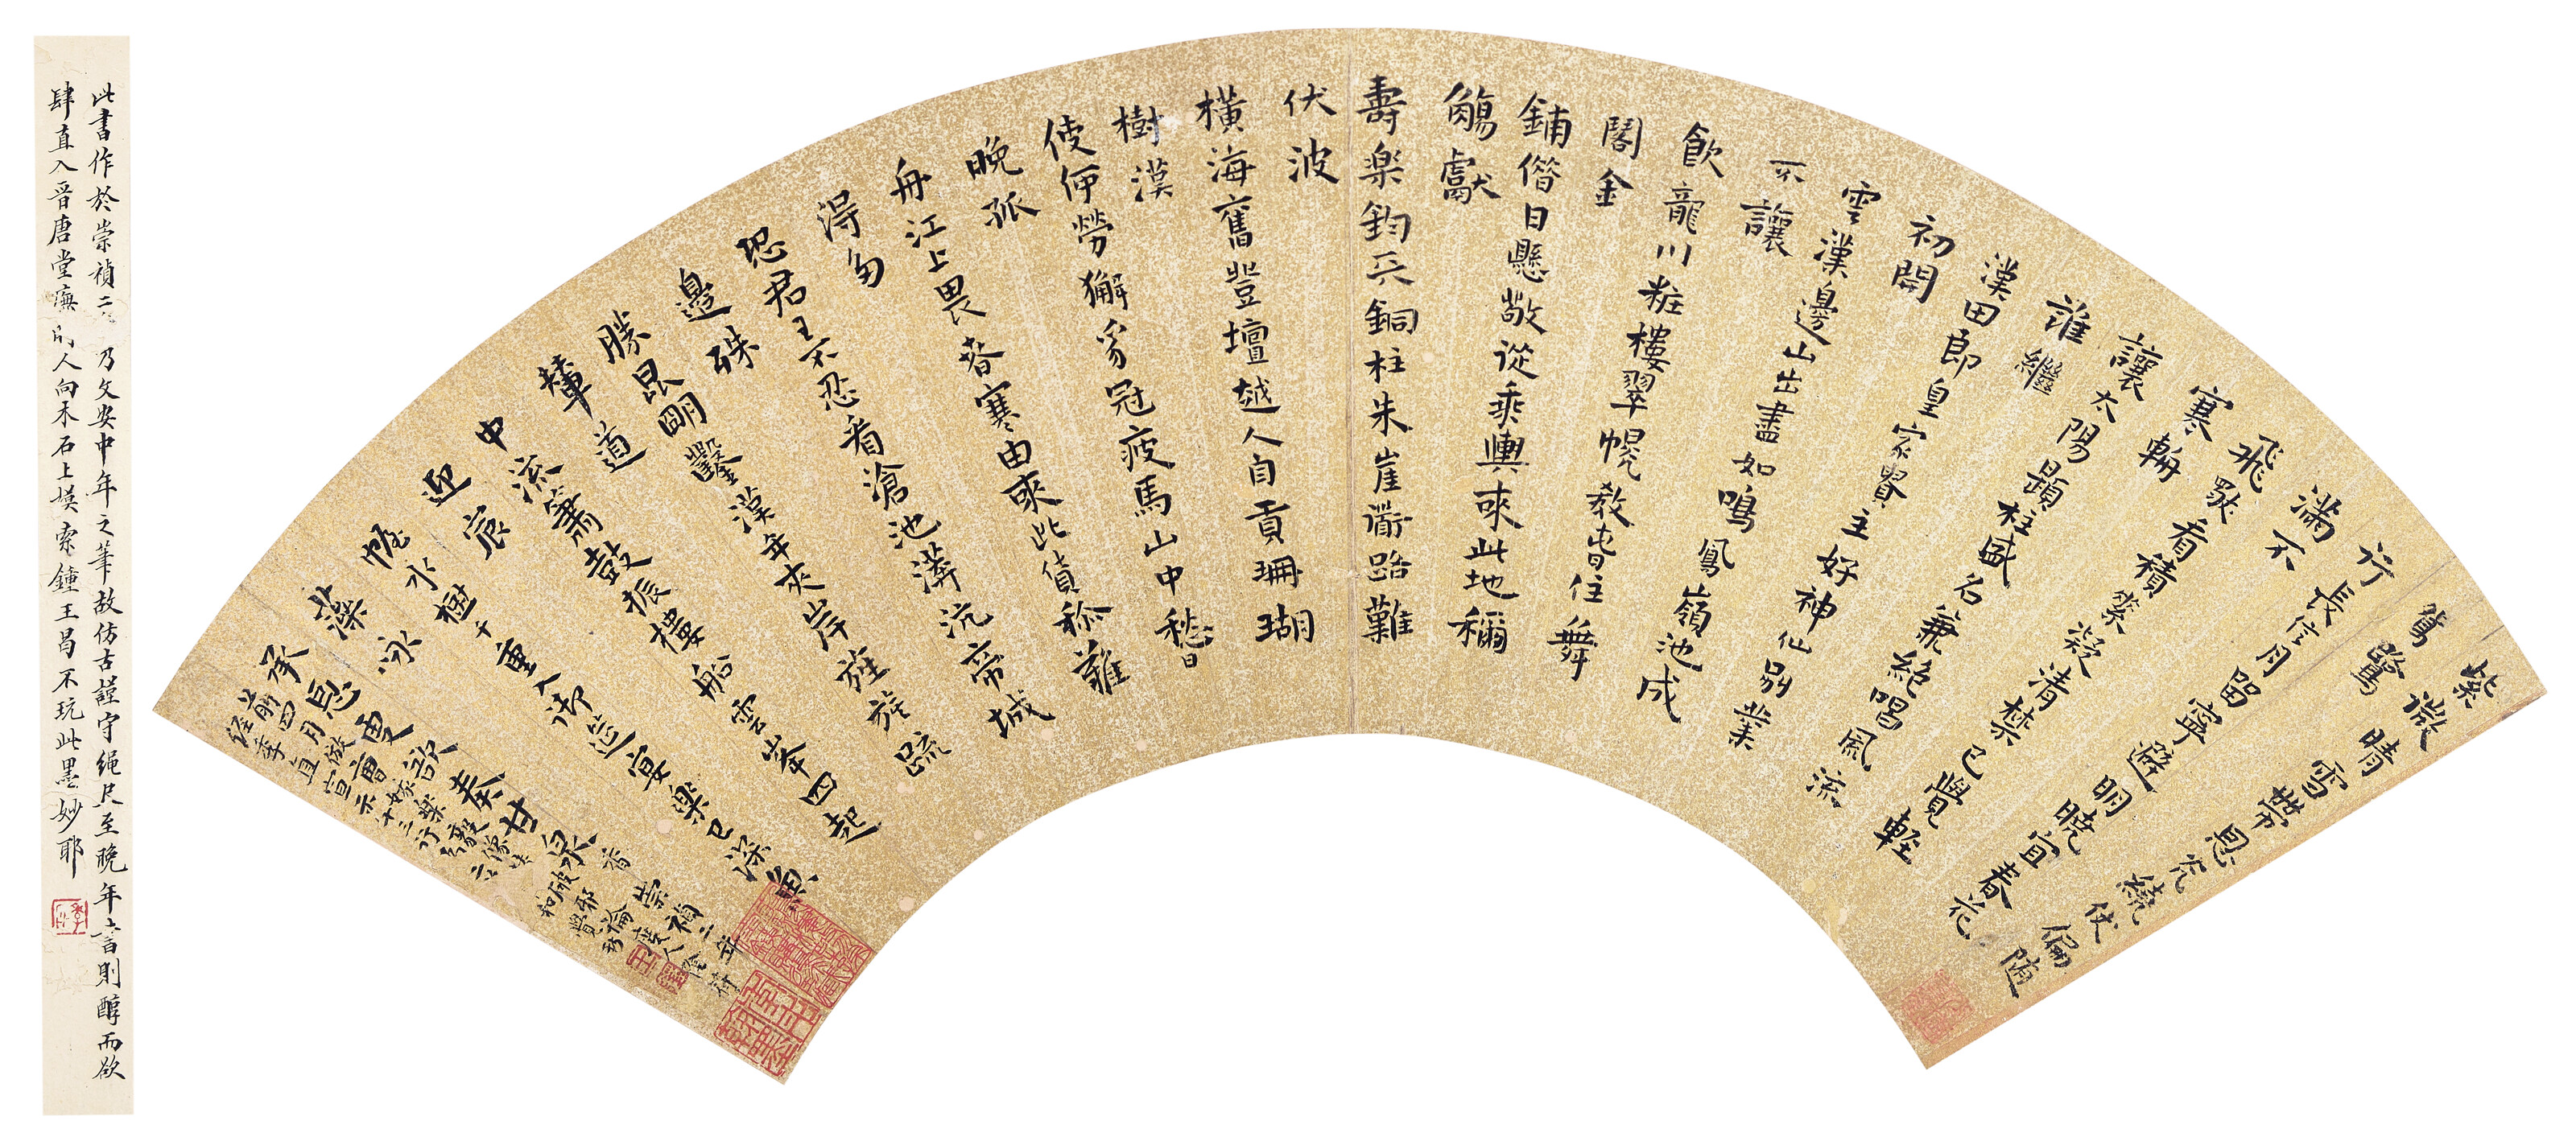 紫微晴雪帶恩光繞仗偏隨
鴛鷺
行長信月留寧避明曉宜春花
滿不
飛看積素凝清禁已覺輕
寒
讓太陽題柱盛名兼絕唱風流
誰繼
漢田郎皇家貴主好神仙別業
初開
雲漢邊山出盡如鳴鳳嶺池成
不讓
飲龍川粧樓翠幌教春住舞
閣金
鋪借日懸敬從乘輿來此地稱
觴獻
壽樂鈞天銅柱朱崖衟路難
伏波
橫海舊登壇越人自貢珊瑚
樹漢
使何勞獬豸冠疲馬山中愁日
晚孤
舟江上畏春寒由來此貨稱難
得多
恐君王不忍看滄池漭沆帝城
邊殊
勝昆明鑿漢年夾岸旌旗疏
輦道
中流簫鼓振樓船雲峰四起
迎宸
幄水樹千重入御筵宴樂已深魚
藻詠
承恩更欲奏甘泉
崇禎二年
此書作於崇禎二乃文安中年之筆故仿古謹守繩尺至晚年書則醇而欲
肆直入晉唐堂廡的人向木石上摸索鍾王曷不玩此墨妙耶